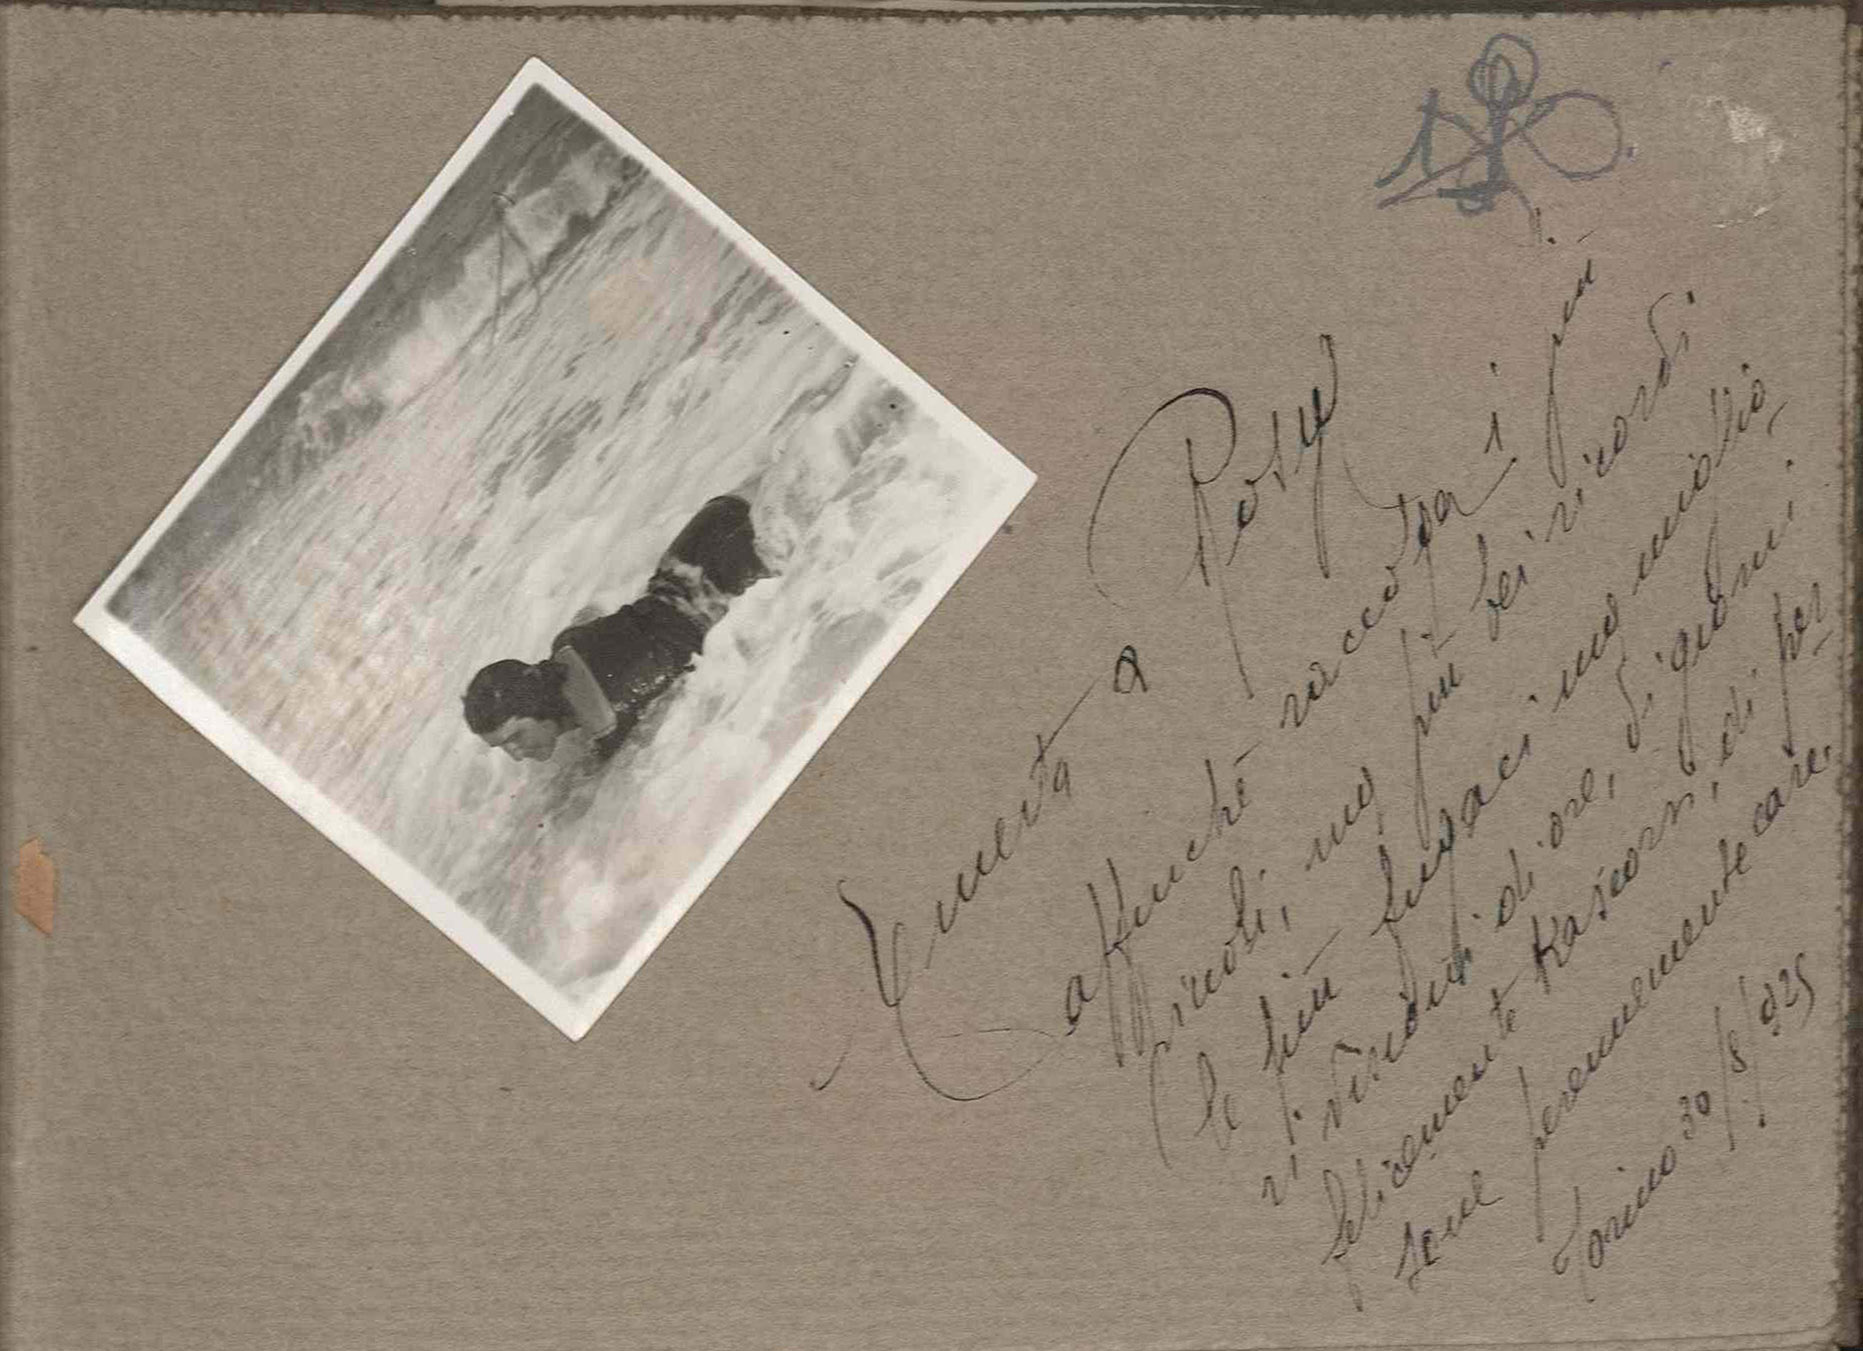 a Rosy
affinché raccolga i più
piccoli, ma più bei ricordi.
le più fugaci ma miglio-
ri visioni di ore, di giorni
felicemente trascorsi, e di per
sone perennemente care.
Torino 30/8/925